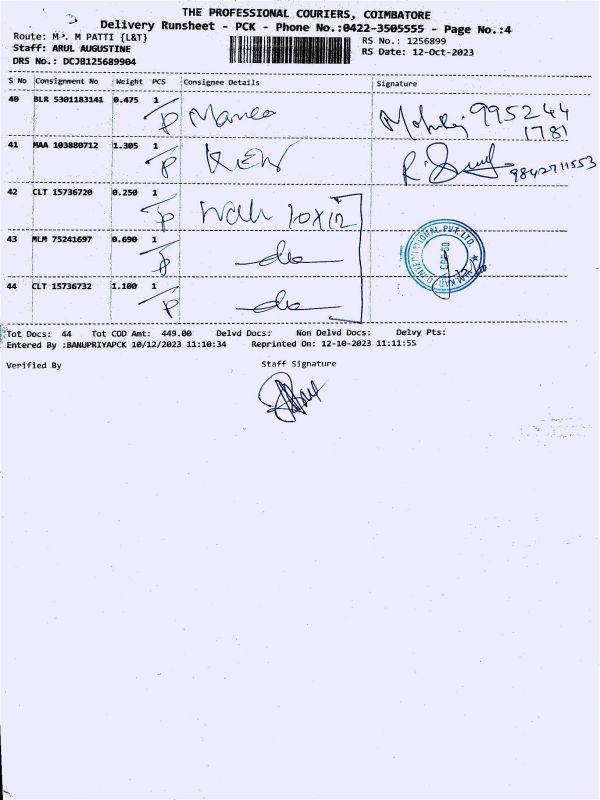 THE PROFESSIONAL COURIERS, COIMBATORE
Delivery Runsheet - PCK - Phone No.:0422-3505555 - Page No.:4
Route: M M PATTI {L&T}
RS No.: 1256899
Staff: ARUL AUGUSTINE
RS Date: 12-Oct-2023
DRS No.: DCJB125689904
S No Consignment No Weight PCS Consignee Details Signature
40 BLR 5301183141 0.475 1
P 995244
1781
41 MAA 103880712 1.305 1
P 9842711553
42 CLT 15736720 0.250 1
P 10X12
43 MLM 75241697 0.690 1
P do
44 CLT 15736732 1.100 1
P do
Tot Docs: 44 Tot COD Amt: 449.00 Delvd Docs: Non Delvd Docs: Delvy Pts:
Entered By :BANUPRIYAPCK 10/12/2023 11:10:34 Reprinted On: 12-10-2023 11:11:55
Verified By Staff Signature